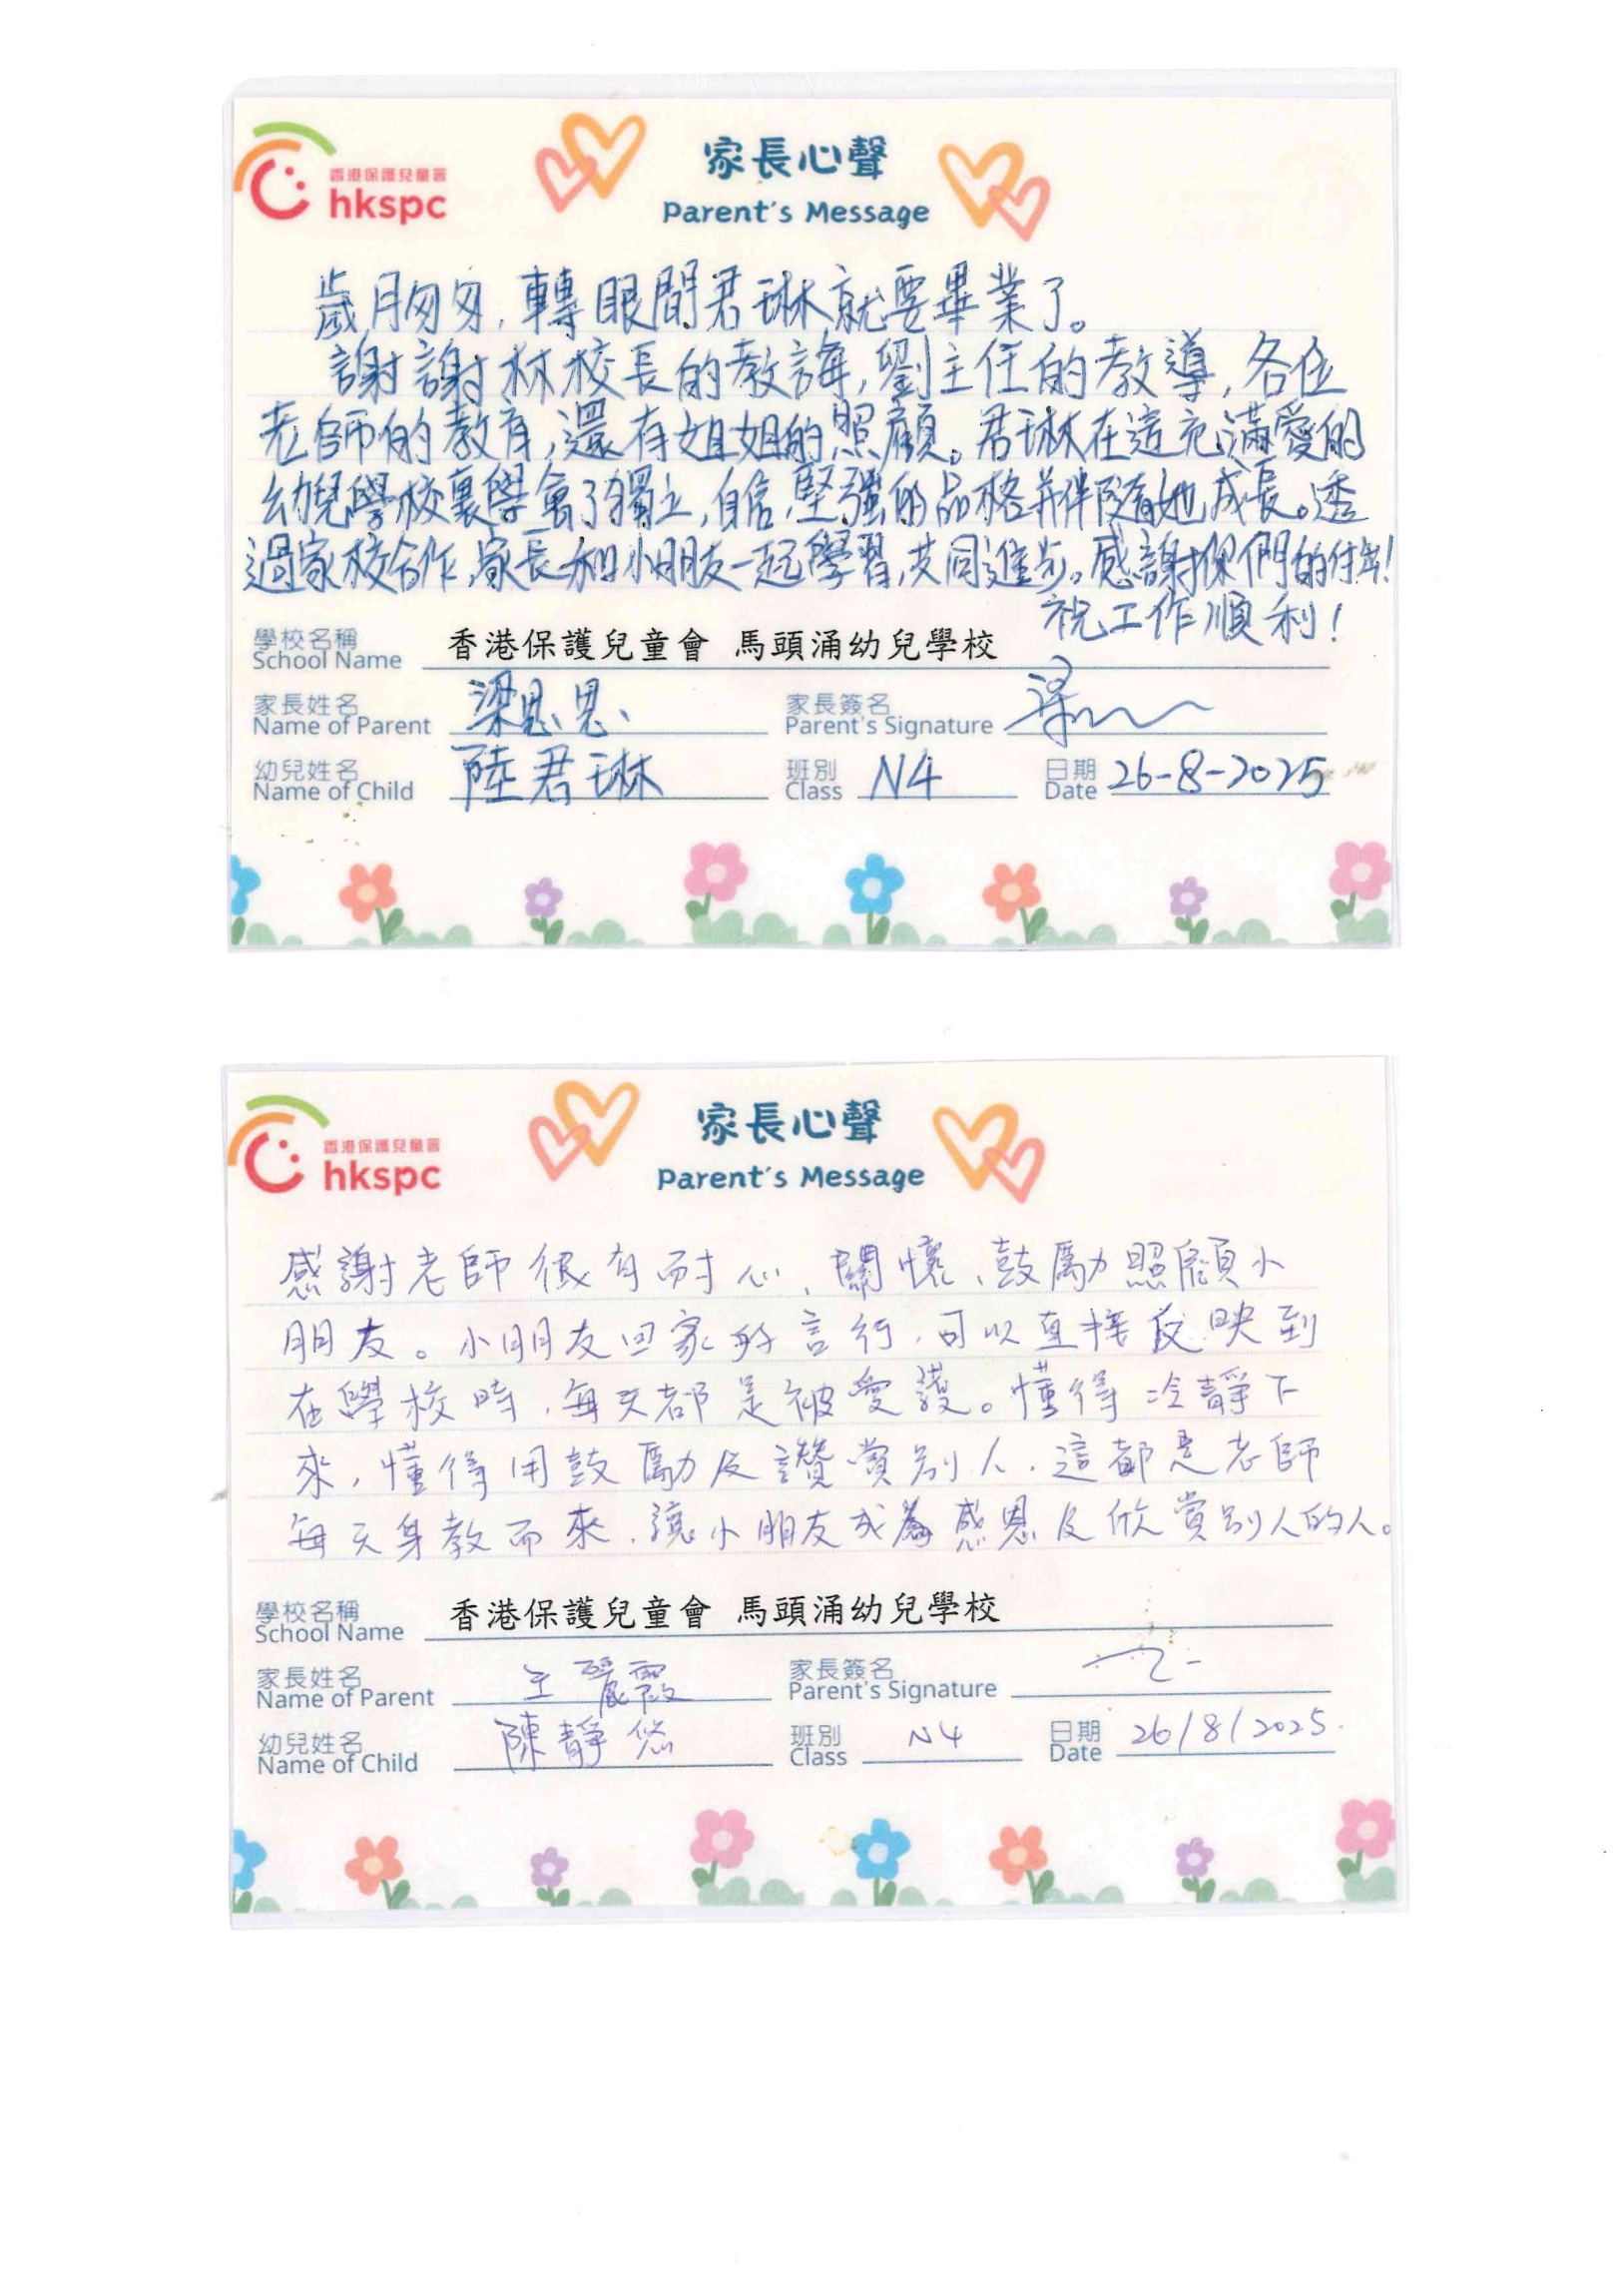 香港保護兒童會
hkspc
家長心聲
Parent's Message
歲月匆匆,轉眼間君琳就要畢業了。
謝謝林校長的教誨,劉主任的教導,各位
老師的教育,還有姐姐的照顧。君琳在這充滿愛的
幼兒學校裏學會了獨立,自信,堅強的品格并伴隨着她成長。透
過家校合作,家長和小朋友一起學習,共同進步。感謝你們的付出!
祝工作順利!
學校名稱
School Name 香港保護兒童會 馬頭涌幼兒學校
家長姓名 家長簽名
Name of Parent 梁思恩 Parent's Signature 梁
幼兒姓名 班別 日期
Name of Child 陸君琳 Class N4 Date 26-8-2025
香港保護兒童會
hkspc
家長心聲
Parent's Message
感謝老師很有耐心、關懷、鼓勵照顧小
朋友。小朋友回家的言行,可以直接反映到
在學校時,每天都是被愛護。懂得冷靜下
來,懂得用鼓勵及讚賞別人,這都是老師
每天身教而來,讓小朋友成為感恩及欣賞別人的人。
學校名稱
School Name 香港保護兒童會 馬頭涌幼兒學校
家長姓名 家長簽名
Name of Parent 王麗霞 Parent's Signature
幼兒姓名 班別 日期
Name of Child 陳靜悠 Class N4 Date 26/8/2025